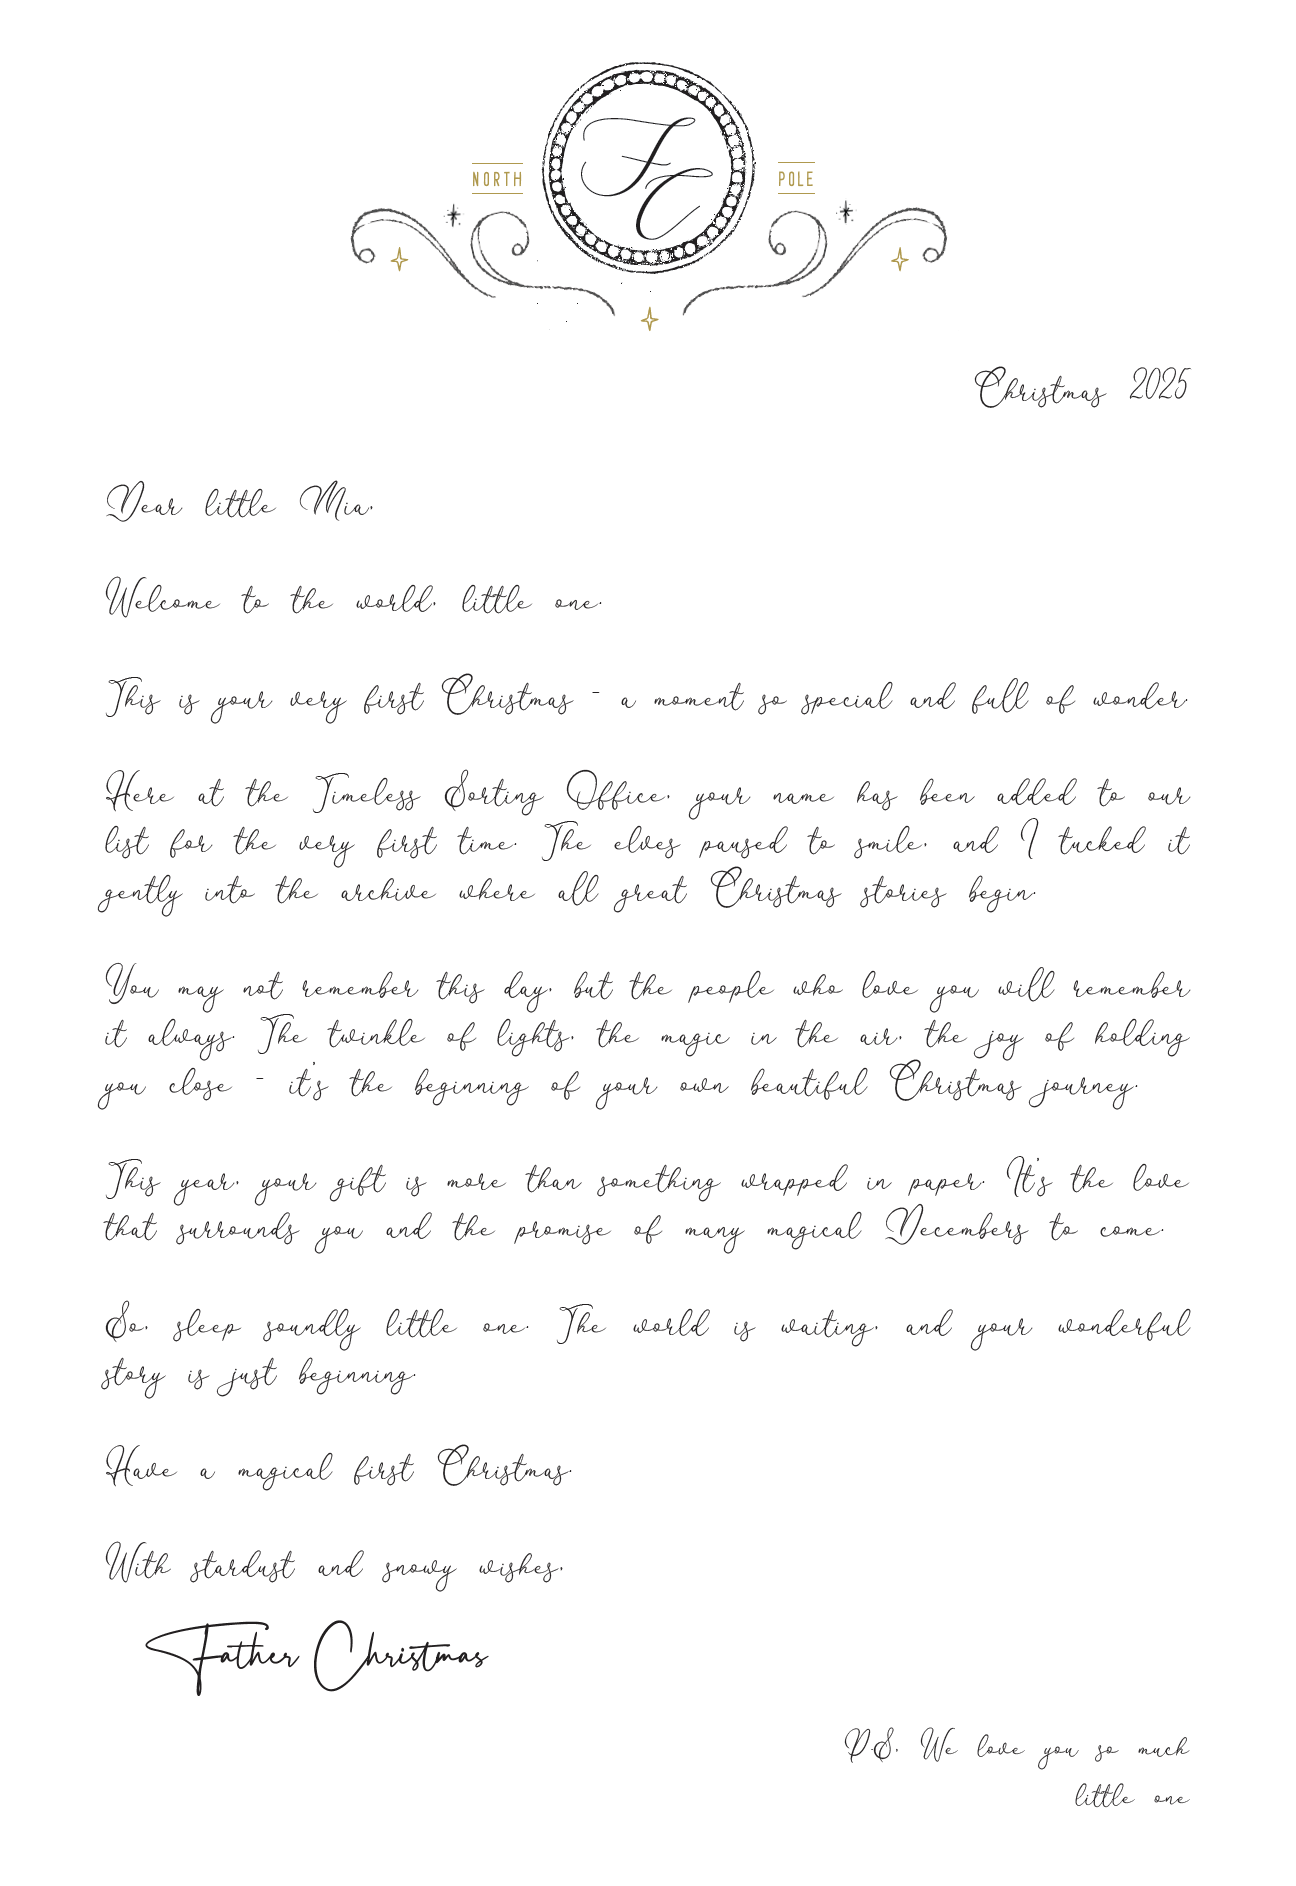 FC
NORTH POLE
Christmas 2025
Dear little Mia,
Welcome to the world, little one.
This is your very first Christmas - a moment so special and full of wonder.
Here at the Timeless Sorting Office, your name has been added to our
list for the very first time. The elves paused to smile, and I tucked it
gently into the archive where all great Christmas stories begin.
You may not remember this day, but the people who love you will remember
it always. The twinkle of lights, the magic in the air, the joy of holding
you close - it's the beginning of your own beautiful Christmas journey.
This year, your gift is more than something wrapped in paper. It's the love
that surrounds you and the promise of many magical Decembers to come.
So, sleep soundly little one. The world is waiting, and your wonderful
story is just beginning.
Have a magical first Christmas.
With stardust and snowy wishes,
Father Christmas
P.S. We love you so much
little one